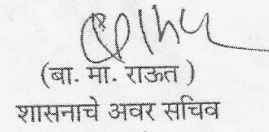 (बा. मा. राऊत )
शासनाचे अवर सचिव